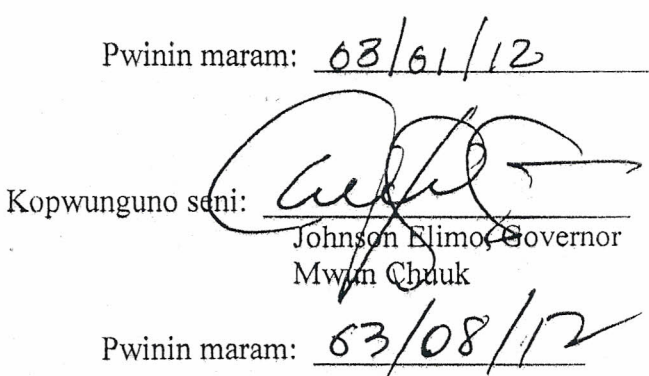 Pwinin maram: 03/01/12
Kopwunguno seni:
Johnson Elimo, Governor
Mwun Chuuk
Pwinin maram: 03/08/12